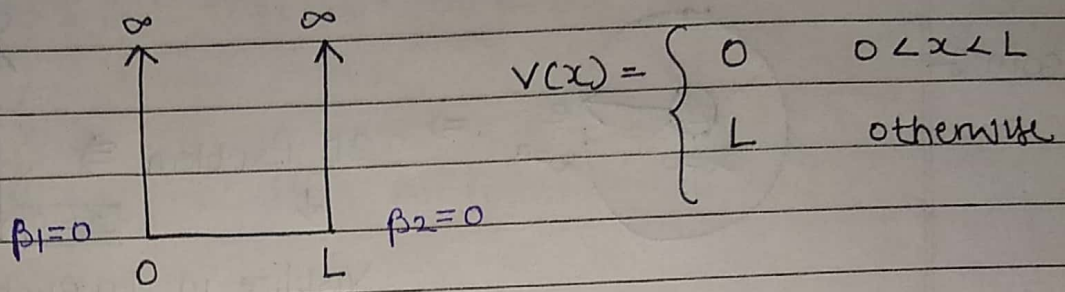 ∞ ∞
V(x) = { 0 0 < x < L
L otherwise
β1=0 β2=0
0 L